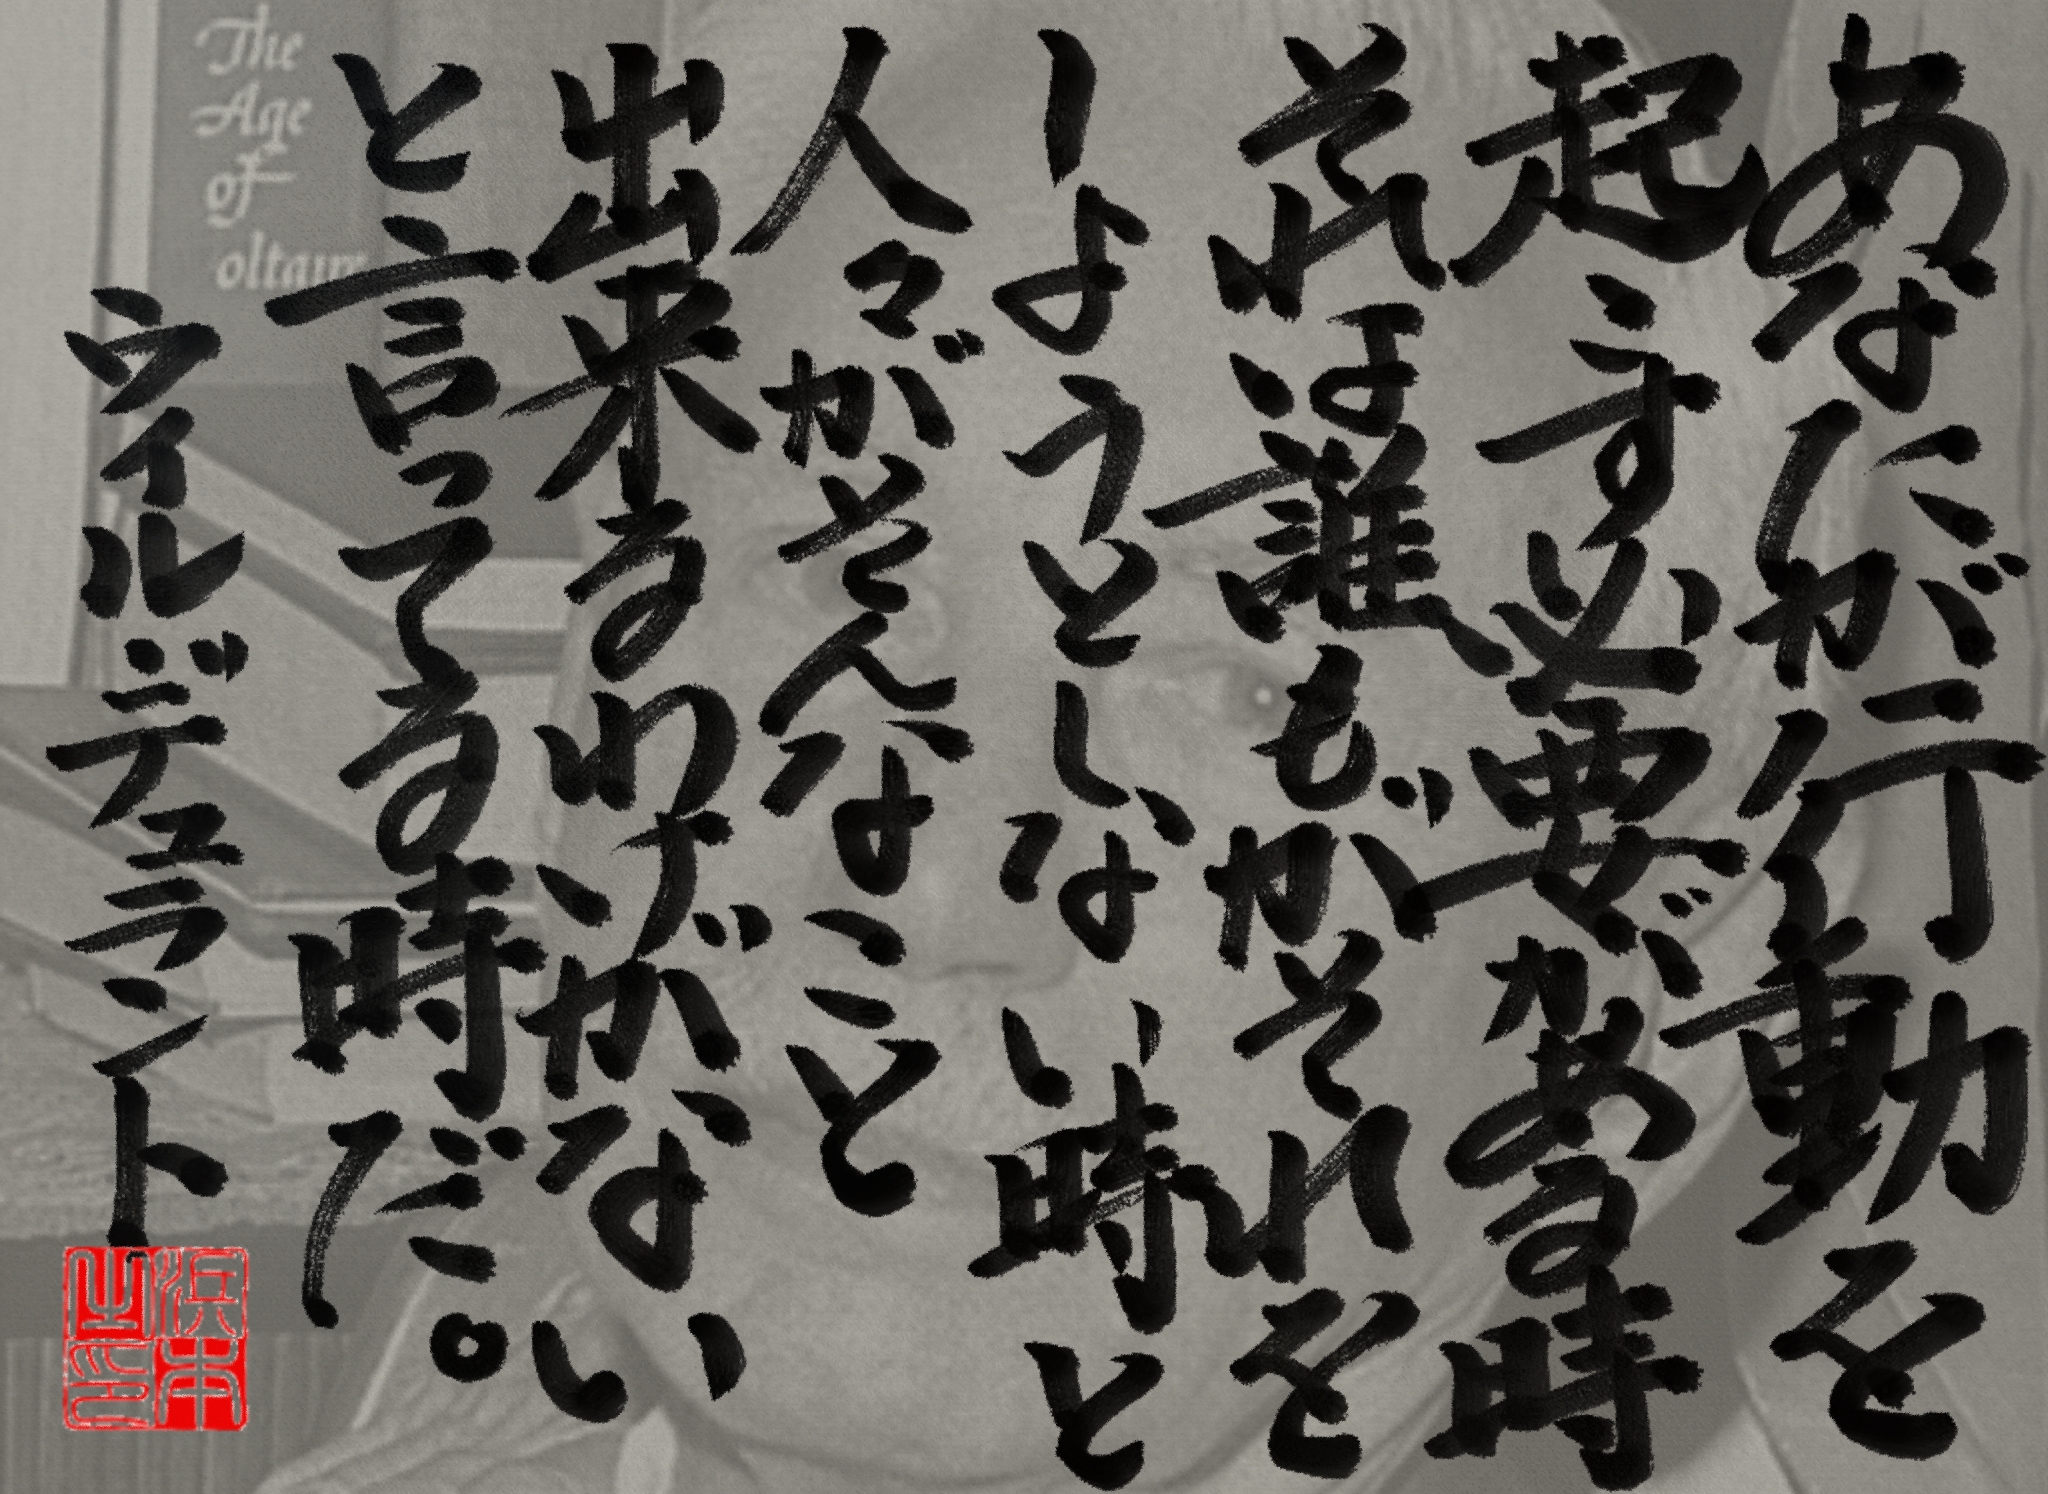 あなたが行動を
起こす必要がある時
それは誰もがそれを
しようとしない時と
人々がそんなこと
出来るわけがない
と言ってる時だ。
ウィル・デュラント
浜本之印
The
Age
of